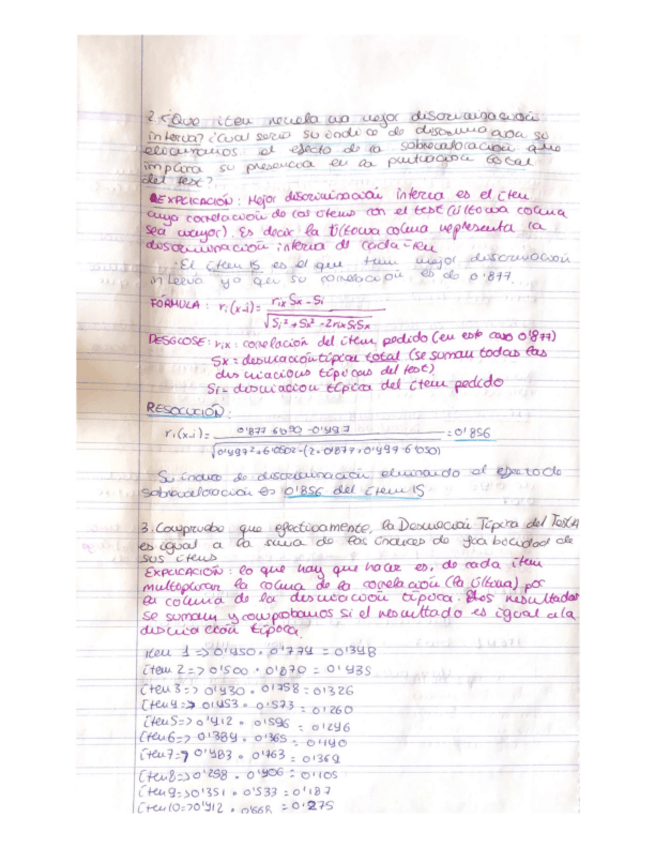 2. ¿Que item revela una mejor discriminación
interna? ¿Cual seria su indice de discriminación si
eliminamos el efecto de la sobrevaloración que
implica su presencia en la puntuación total
del test?
EXPLICACIÓN: Mejor discriminación interna es el ítem
cuya correlación de los items con el test (última columna
sea mayor). Es decir la última columna representa la
discriminación interna de cada item
El ítem 15 es el que tiene mejor discriminación
interna ya que su correlación es de 0'877.
FÓRMULA: ri(x-i) = rix Sx - Si
√Si² + Sx² - 2rix Si Sx
DESGLOSE: rix: correlación del item pedido (en este caso 0'877)
Sx = desviación típica total (se suman todas las
desviaciones típicas del test)
Si = desviación típica del item pedido
RESOLUCIÓN:
ri(x-i) = 0'877 · 6'050 - 0'497 = 0'856
√0'497² + 6'050² - (2 · 0'877 · 0'497 · 6'050)
Su indice de discriminación eliminando el efecto de
sobrevaloración es 0'856 del item 15
3. Comprueba que efectivamente, la Desviación Típica del Test
es igual a la suma de los indices de fiabilidad de
sus items
EXPLICACIÓN: lo que hay que hacer es, de cada item
multiplicar la columna de la correlación (la última) por
la columna de la desviación típica. Los resultados
se suman y comprobamos si el resultado es igual a la
desviación típica.
item 1 => 0'450 · 0'774 = 0'348
item 2 => 0'500 · 0'870 = 0'435
item 3 => 0'430 · 0'758 = 0'326
item 4 => 0'453 · 0'573 = 0'260
item 5 => 0'412 · 0'596 = 0'246
item 6 => 0'384 · 0'365 = 0'140
item 7 => 0'483 · 0'763 = 0'369
item 8 => 0'258 · 0'406 = 0'105
item 9 => 0'351 · 0'533 = 0'187
item 10 => 0'412 · 0'668 = 0'275